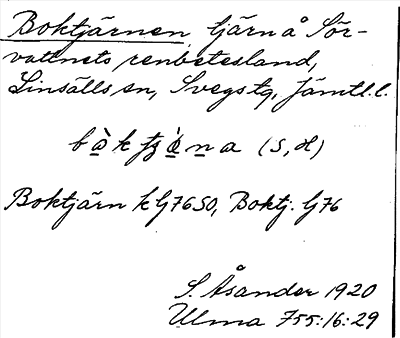 Boktjärnen, tjärn å Sör-
vattnets renbetesland,
Linsälls sn, Svegs tg, Jämtl. l.
(S, H)
Boktjärn k G7650, Boktj. G76
S. Åsander 1920
Ulma 755:16:29